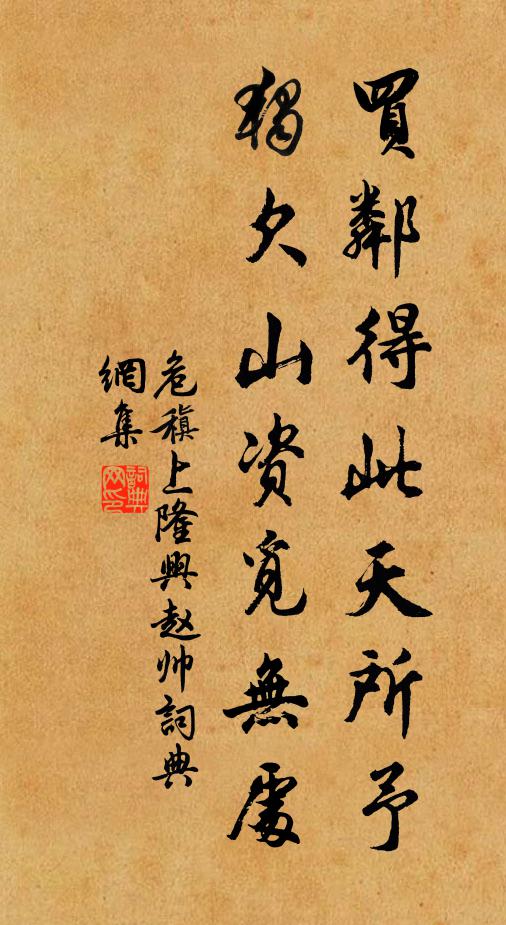 買鄰得此天所予
獨欠山資覓無處
危稹上隆興赵帅詞典
網集
詞典
网印